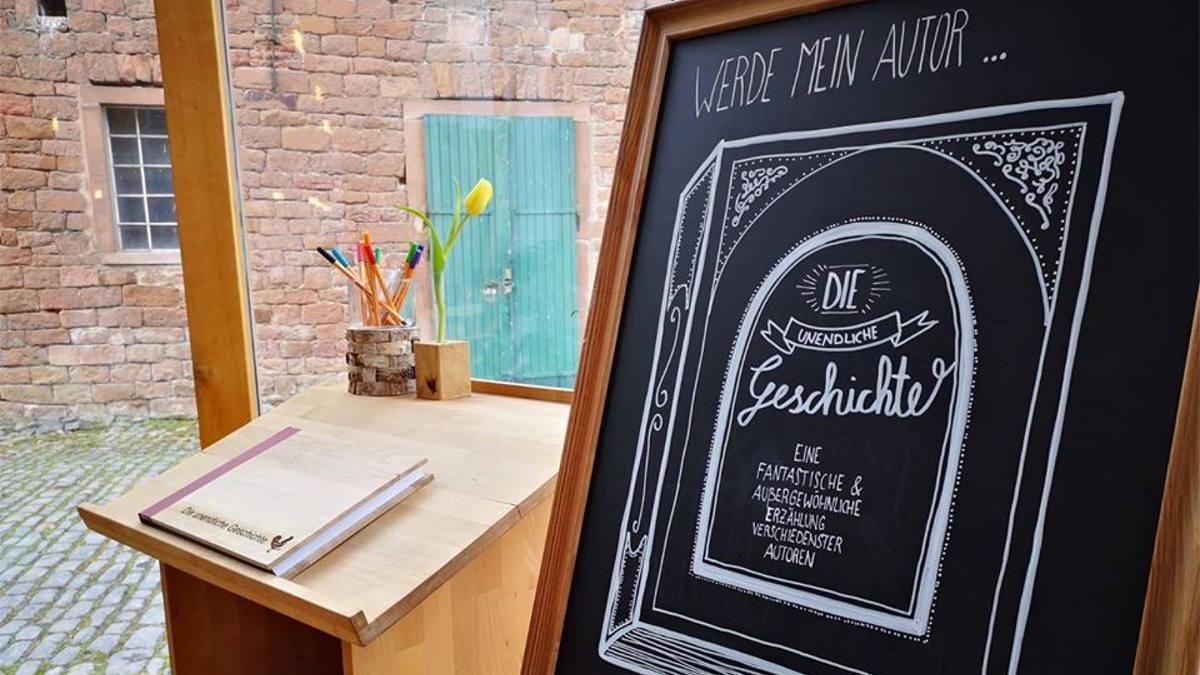 WERDE MEIN AUTOR ...
DIE
UNENDLICHE
Geschichte
EINE
FANTASTISCHE &
AUßERGEWÖHNLICHE
ERZÄHLUNG
VERSCHIEDENSTER
AUTOREN
Die unendliche Geschichte